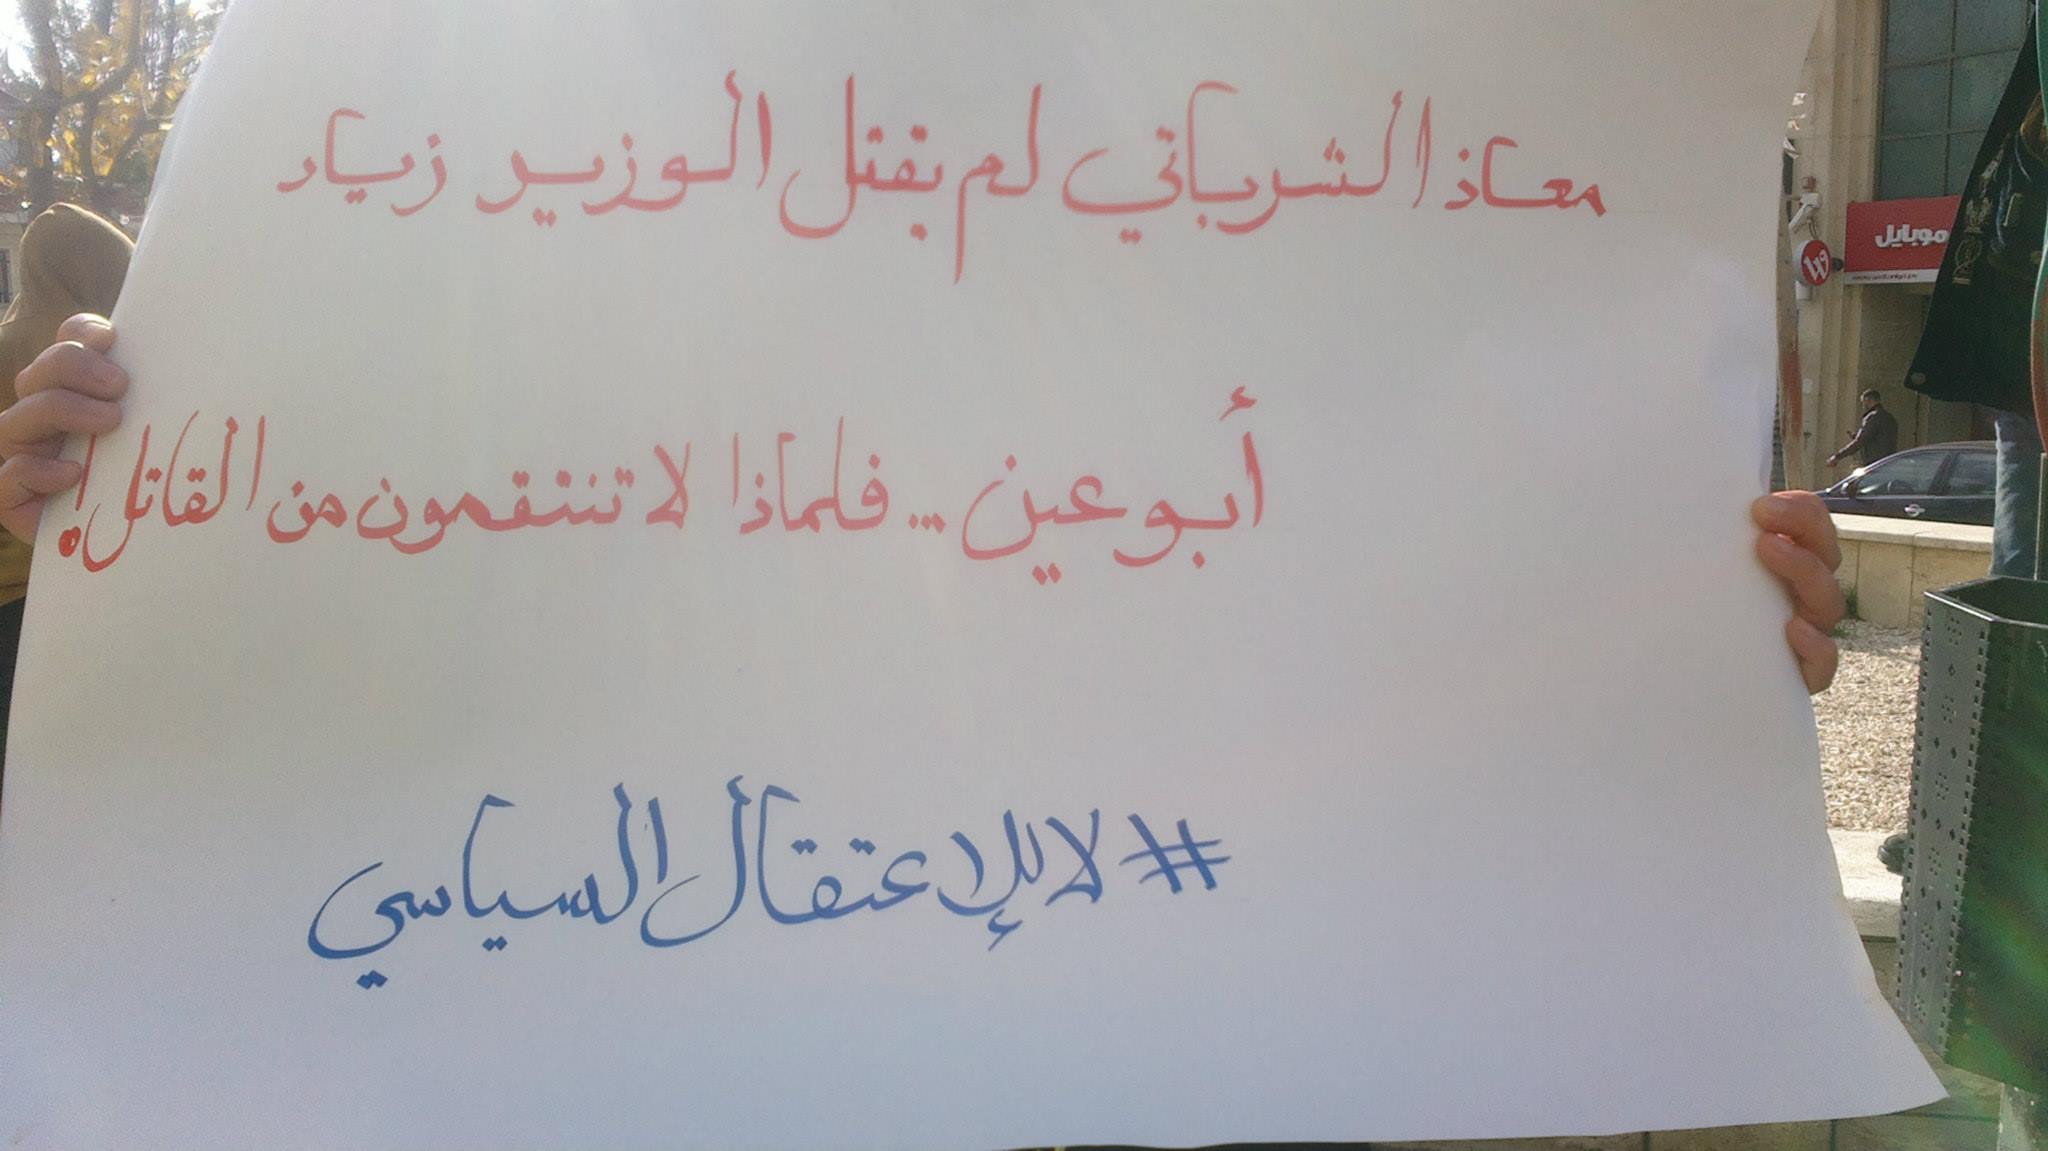 معاذ الشرباتي لم يقتل الوزير زياد
أبو عين ... فلماذا لا تنتقمون من القاتل!
#لا للإعتقال السياسي
موبايل